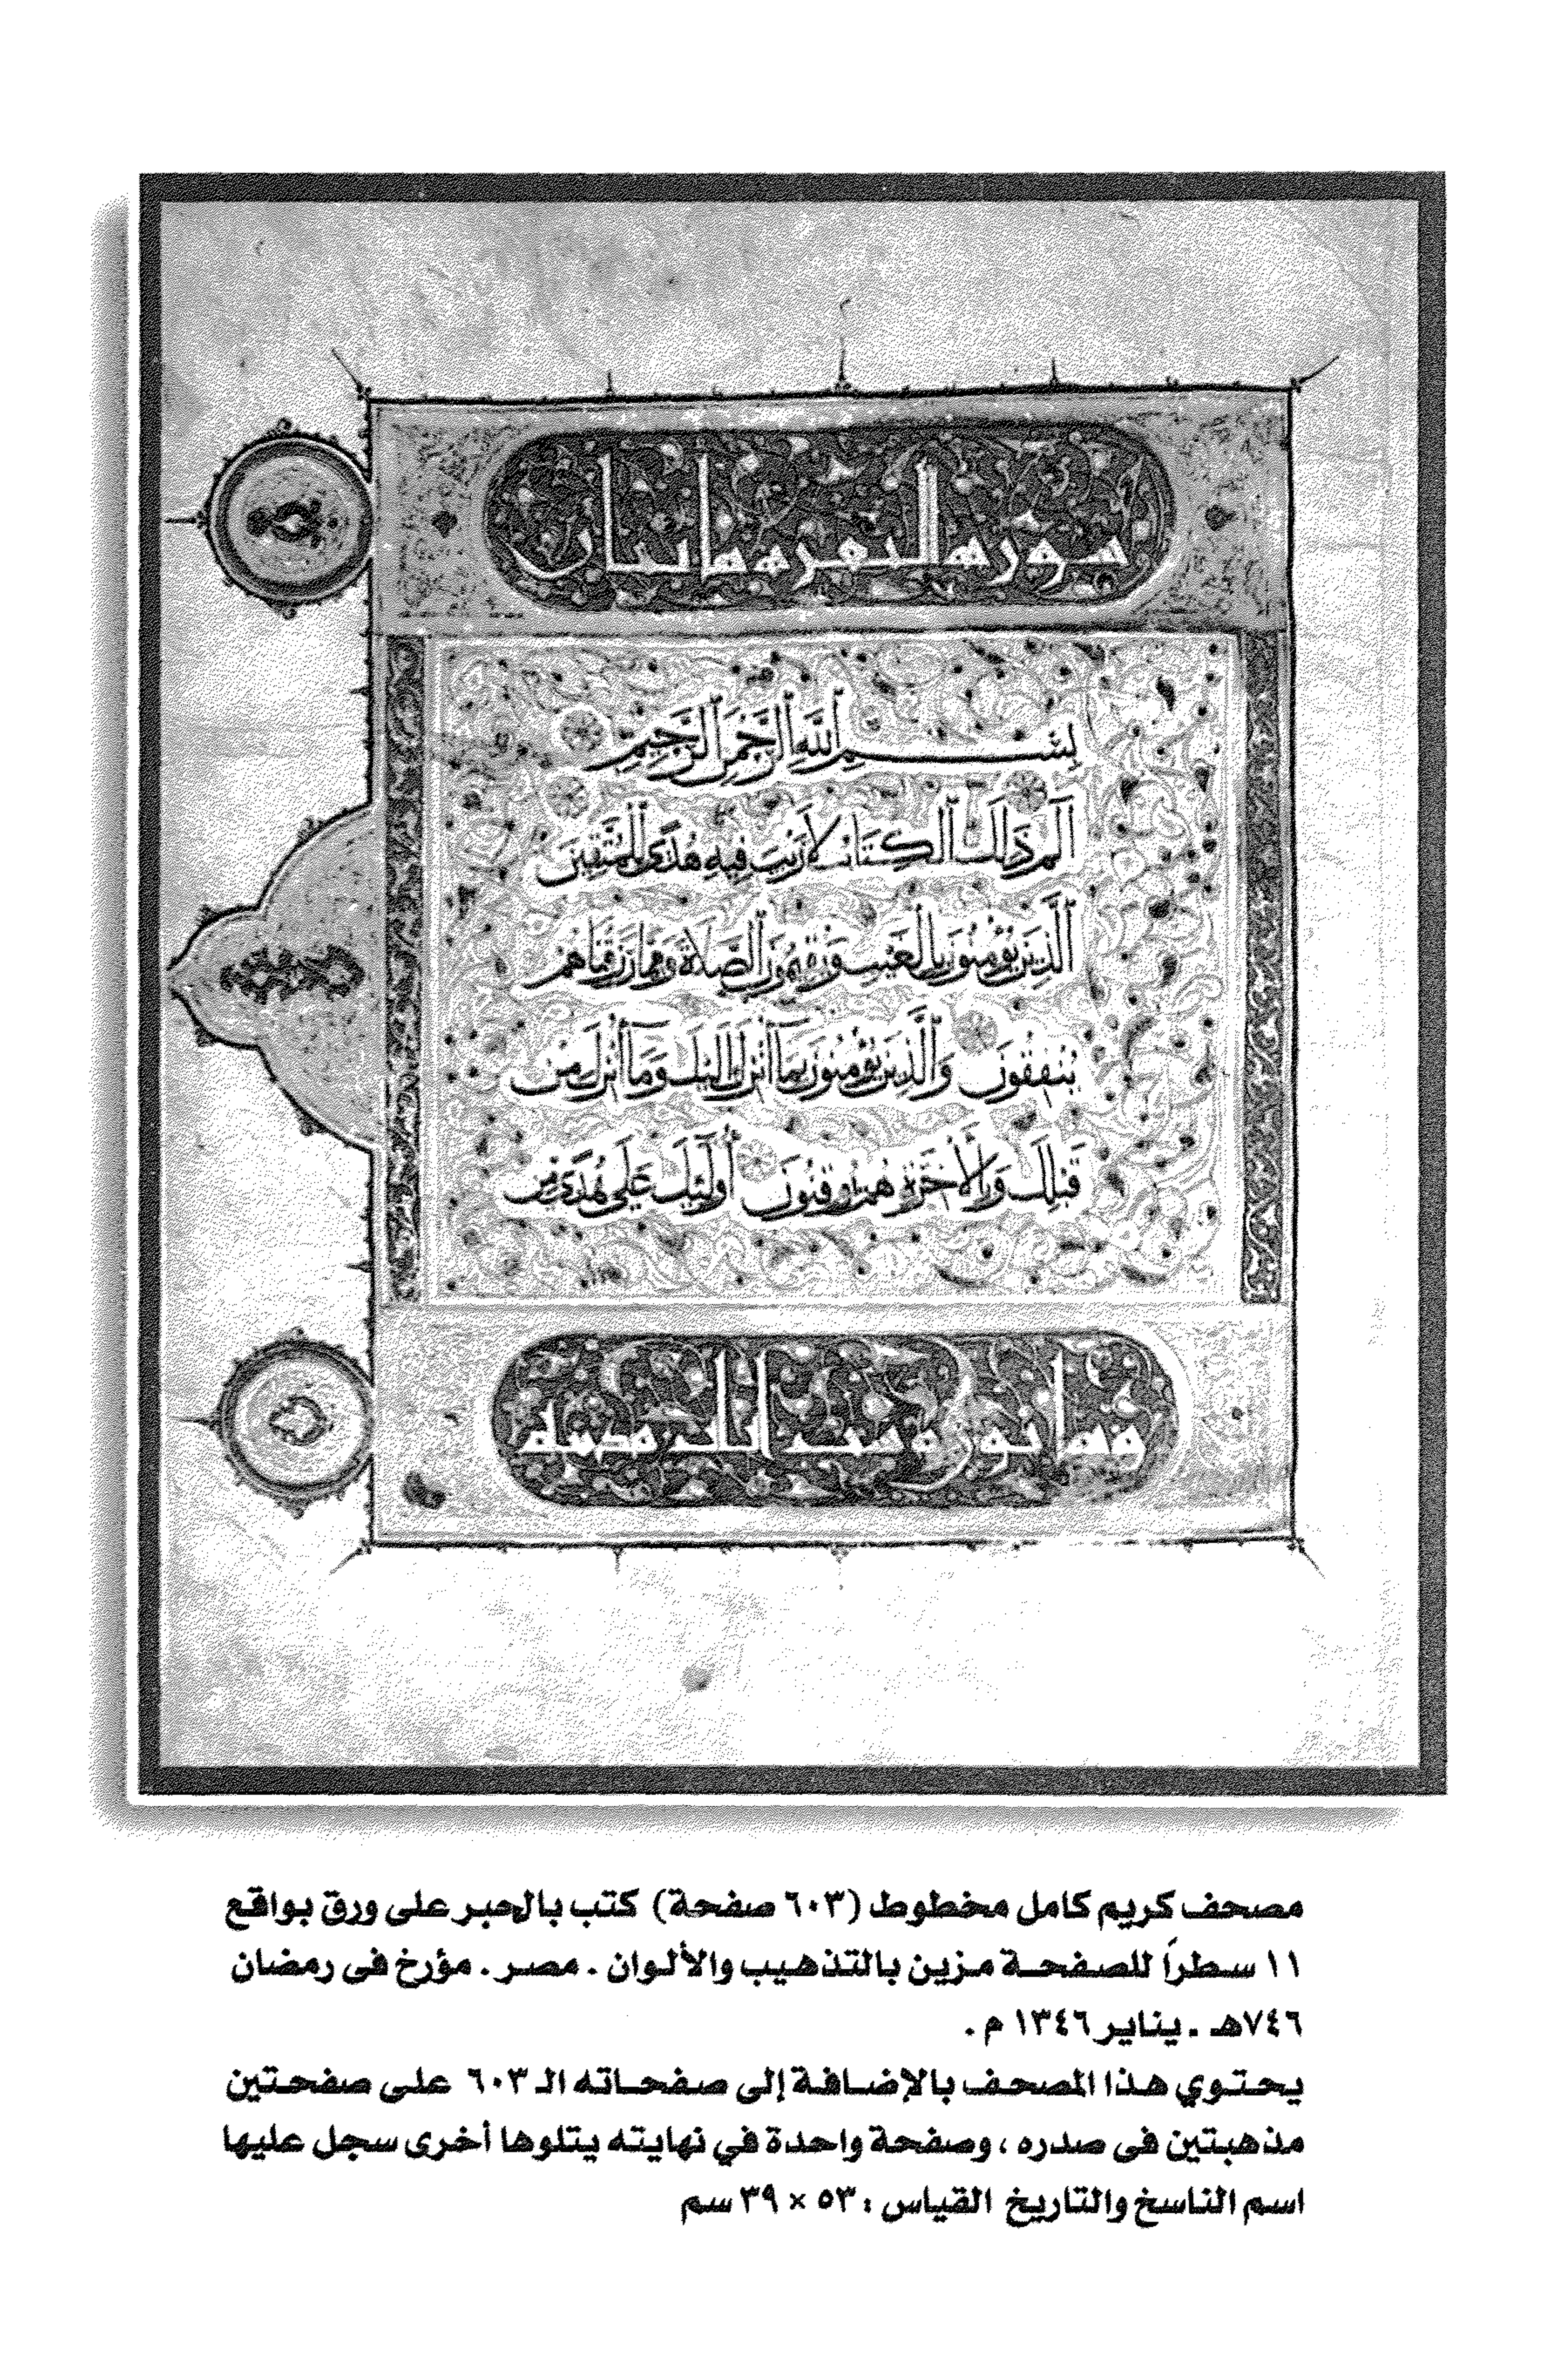 سورة البقرة مائتان
بِسْمِ اللَّهِ الرَّحْمَنِ الرَّحِيمِ
الم ذَلِكَ الْكِتَابُ لَا رَيْبَ فِيهِ هُدًى لِلْمُتَّقِينَ
الَّذِينَ يُؤْمِنُونَ بِالْغَيْبِ وَيُقِيمُونَ الصَّلَاةَ وَمِمَّا رَزَقْنَاهُمْ
يُنْفِقُونَ وَالَّذِينَ يُؤْمِنُونَ بِمَا أُنْزِلَ إِلَيْكَ وَمَا أُنْزِلَ مِنْ
قَبْلِكَ وَبِالْآخِرَةِ هُمْ يُوقِنُونَ أُولَئِكَ عَلَى هُدًى مِنْ
وثمانون وست آيات
مصحف كريم كامل مخطوط (٦٠٣ صفحة) كتب بالحبر على ورق بواقع
١١ سطراً للصفحة مزين بالتذهيب والألوان . مصر . مؤرخ فى رمضان
٧٤٦هـ . يناير ١٣٤٦ م .
يحتوي هذا المصحف بالإضافة إلى صفحاته الـ ٦٠٣ على صفحتين
مذهبتين فى صدره ، وصفحة واحدة في نهايته يتلوها أخرى سجل عليها
اسم الناسخ والتاريخ القياس : ٥٣ × ٣٩ سم